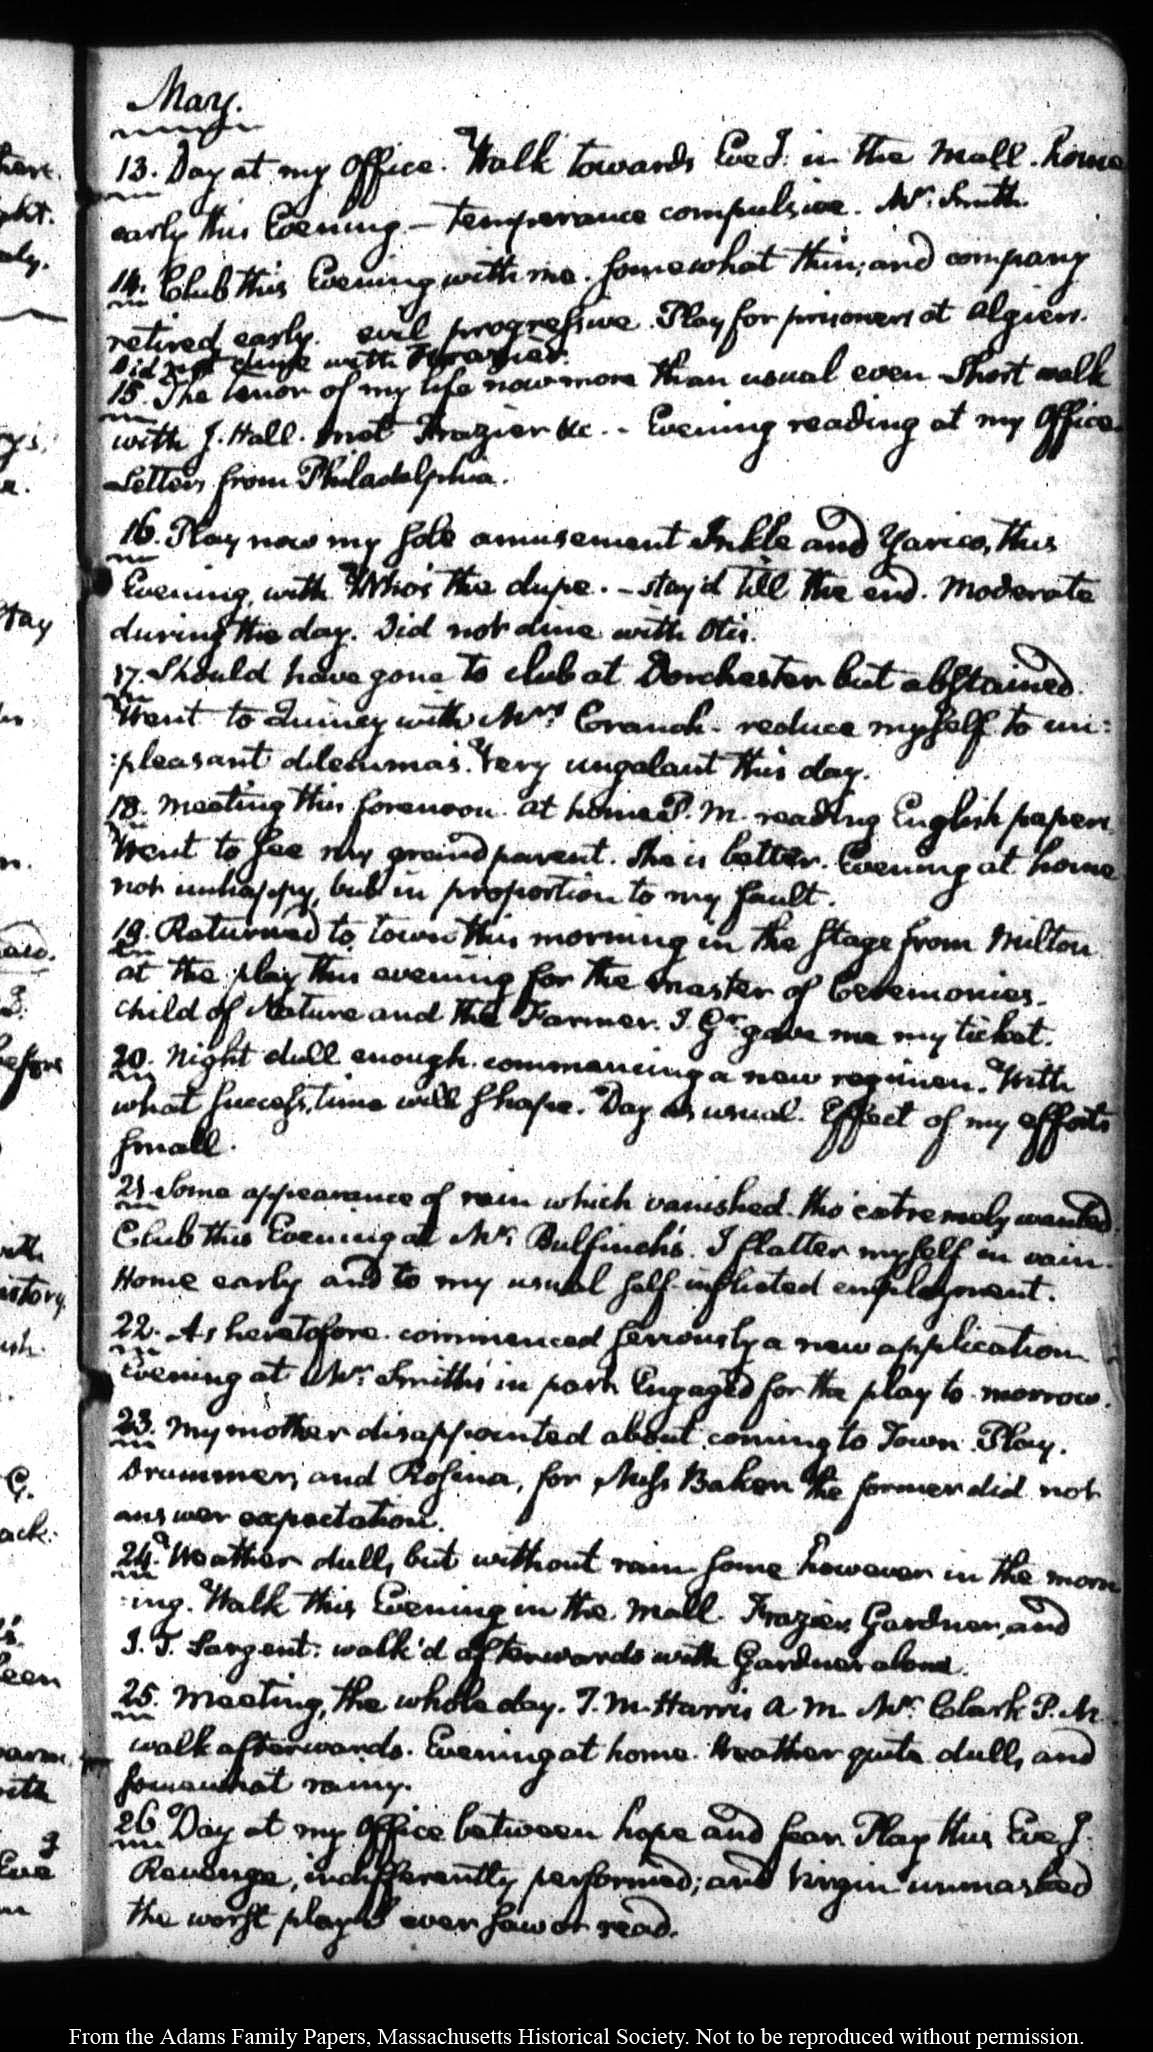 May.
13. Day at my Office. Walk towards Eveg. in the Mall. home
early this Evening — temperance compulsive. Mr. Smith.
14. Club this Evening with me. somewhat thin; and company
retired early. evil progressive. Play for prisoners at Algiers.
Did not dine with Frazier.
15. The tenor of my life now more than usual even Short walk
with J. Hall. met Frazier &c. - Evening reading at my Office.
Letters from Philadelphia.
16. Play now my sole amusement Inkle and Yarico, this
Evening, with Who's the dupe. - stay'd till the end. Moderate
during the day. Did not dine with Otis.
17. Should have gone to club at Dorchester but abstained.
Went to Quincy with Mrs. Cranch. reduce myself to un:
:pleasant dilemmas. Very ungalant this day.
18. Meeting this forenoon. at home P.M. reading English papers.
Went to see my grandparent. She is better. Evening at home
not unhappy, but in proportion to my fault.
19. Returned to town this morning in the Stage from Milton
at the play this evening for the master of Ceremonies.
Child of Nature and the Farmer. J. Gr. gave me my ticket.
20. Night dull enough. commencing a new regimen. With
what success, time will shape. Day as usual. Effect of my efforts
small.
21. Some appearance of rain which vanished. tho' extremely wanted.
Club this Evening at Mr. Bulfinch's. I flatter myself in vain.
Home early and to my usual self-inflicted employment.
22. As heretofore. commenced seriously a new application
Evening at Mr. Smith's in part. Engaged for the play to-morrow.
23. My mother disappointed about coming to Town. Play.
Drummer, and Rosina, for Miss Baker the former did not
answer expectation.
24. Weather dull, but without rain some however in the morn
:ing. Walk this Evening in the Mall. Frazier, Gardner, and
J. T. Sargent. walk'd afterwards with Gardner alone.
25. Meeting, the whole day. T. M. Harris A M. Mr. Clark P. M.
walk afterwards. Evening at home. Weather quite dull, and
somewhat rainy.
26. Day at my Office between hope and fear. Play this Eveg.
Revenge, indifferently performed; and Virgin unmasked
the worst play I ever saw or read.
From the Adams Family Papers, Massachusetts Historical Society. Not to be reproduced without permission.